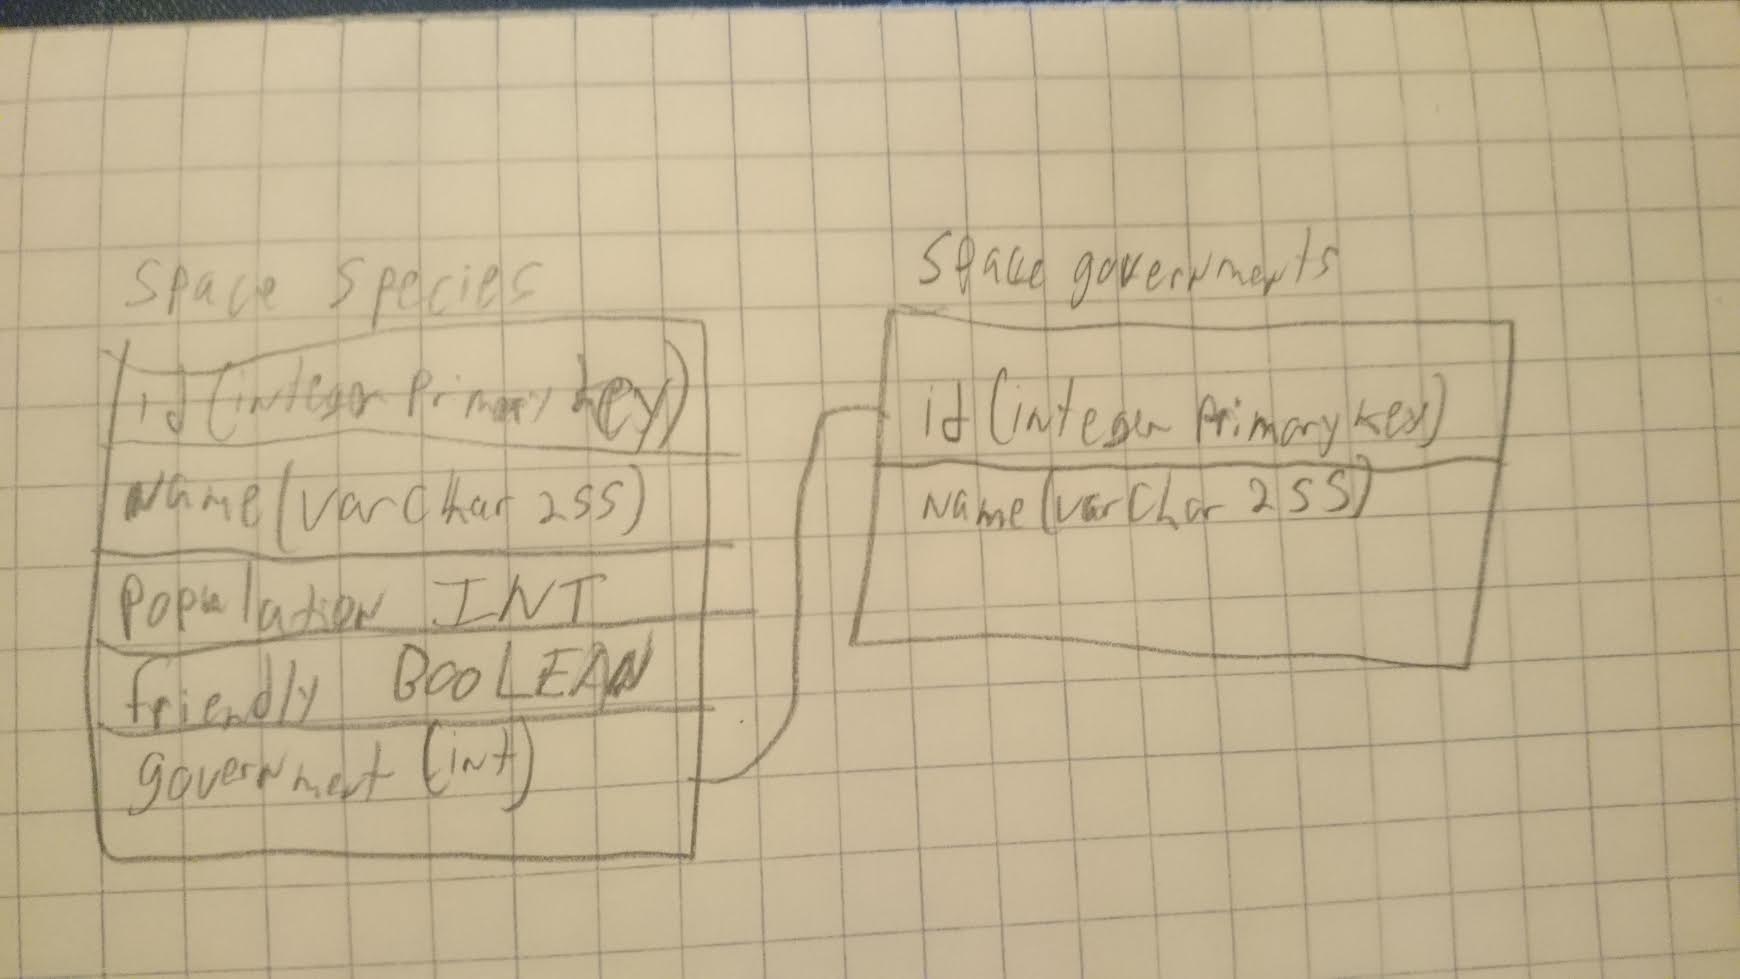 Space Species
id (integer Primary key)
Name (varchar 255)
Population INT
friendly BOOLEAN
government (int)
Space governments
id (integer Primary key)
Name (varchar 255)